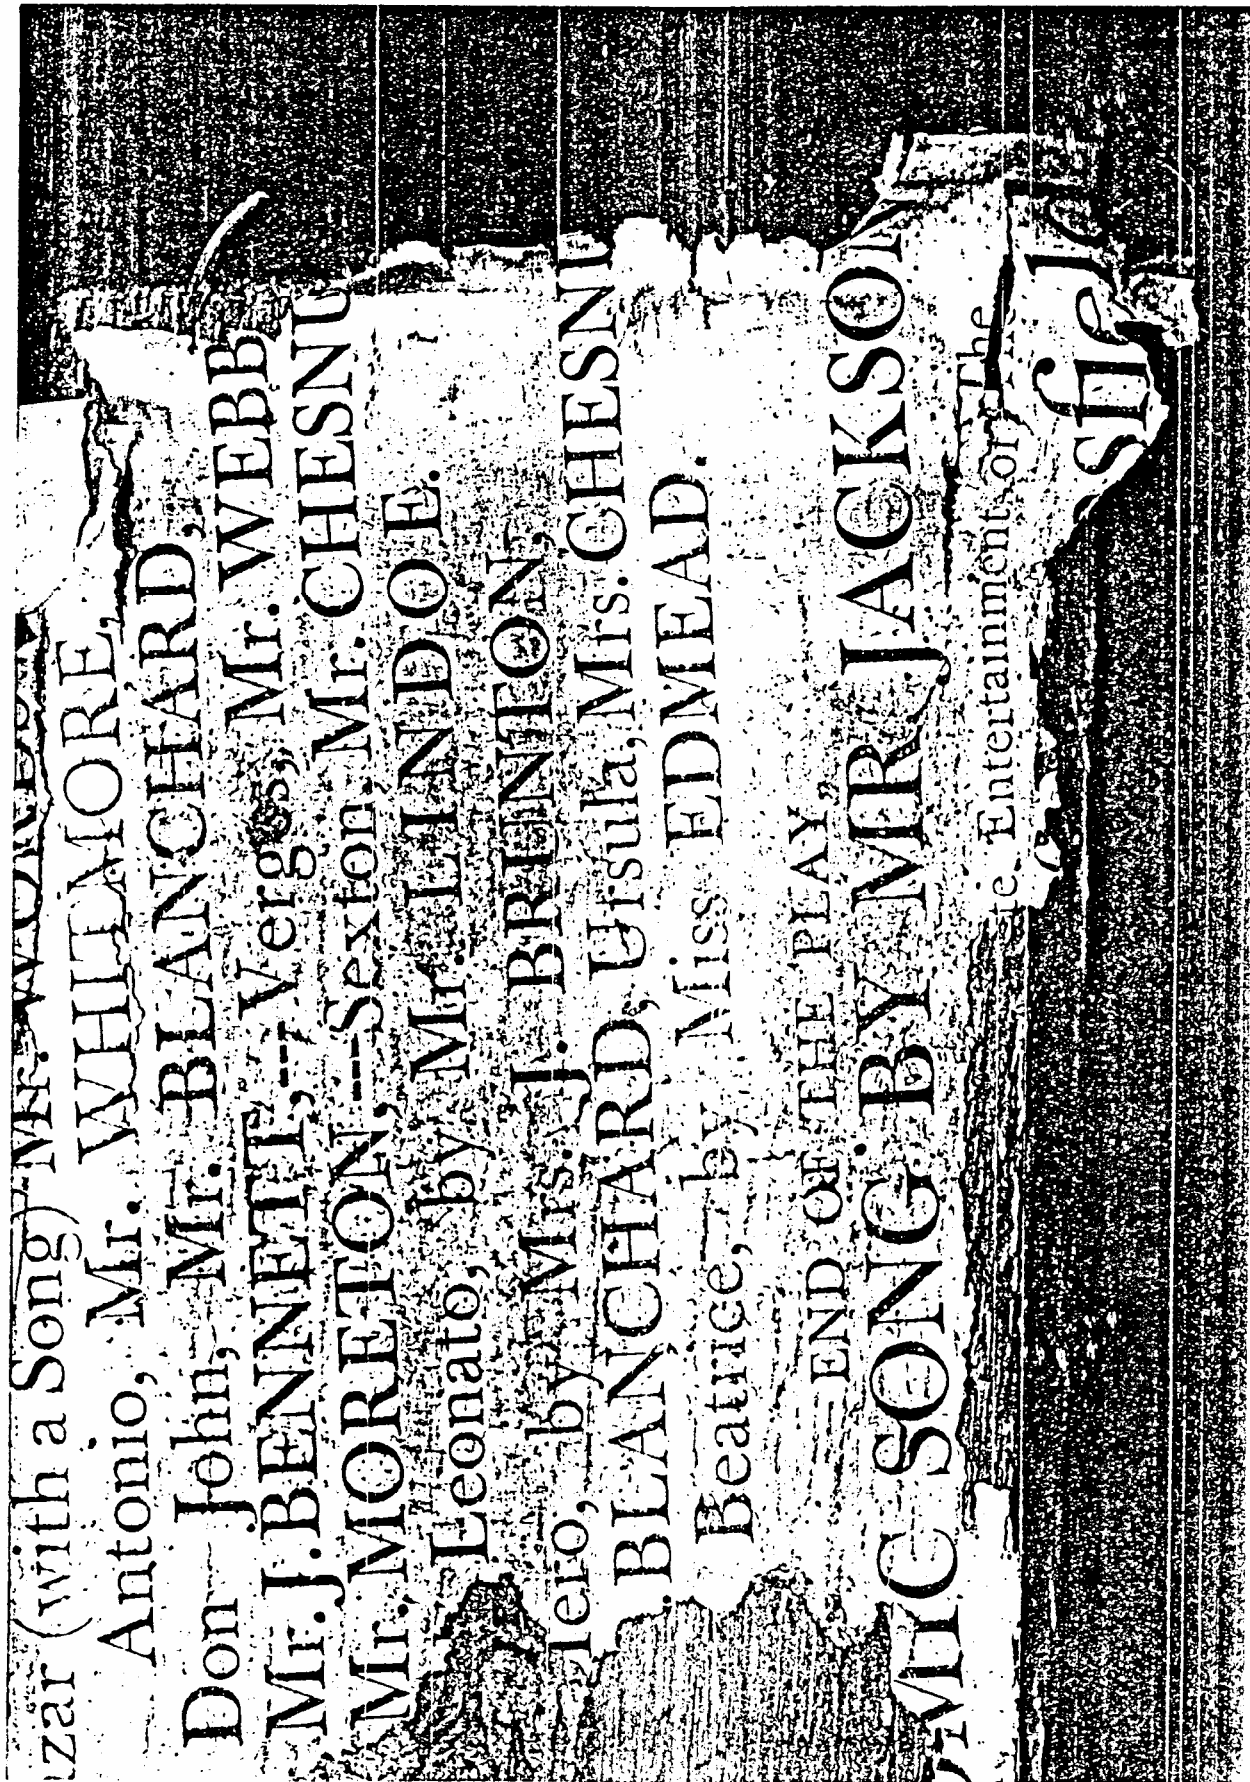 zar (with a Song) Mr.
Antonio, Mr. WHITMORE,
Don John, Mr. BLANCHARD,
Mr. J. BENNETT,--Verges, Mr. WEBB
Mr. MORETON,--Sexton Mr. CHESNU
Leonato, by Mr. LINDOE.
lero, by Mrs. J. BRUNTON,
BLANCHARD, Ursula, Mrs. CHESNU
Beatrice, by Miss EDMEAD.
END OF THE PLAY,
MIC SONG BY MR JACKSON
The
Entertainment of